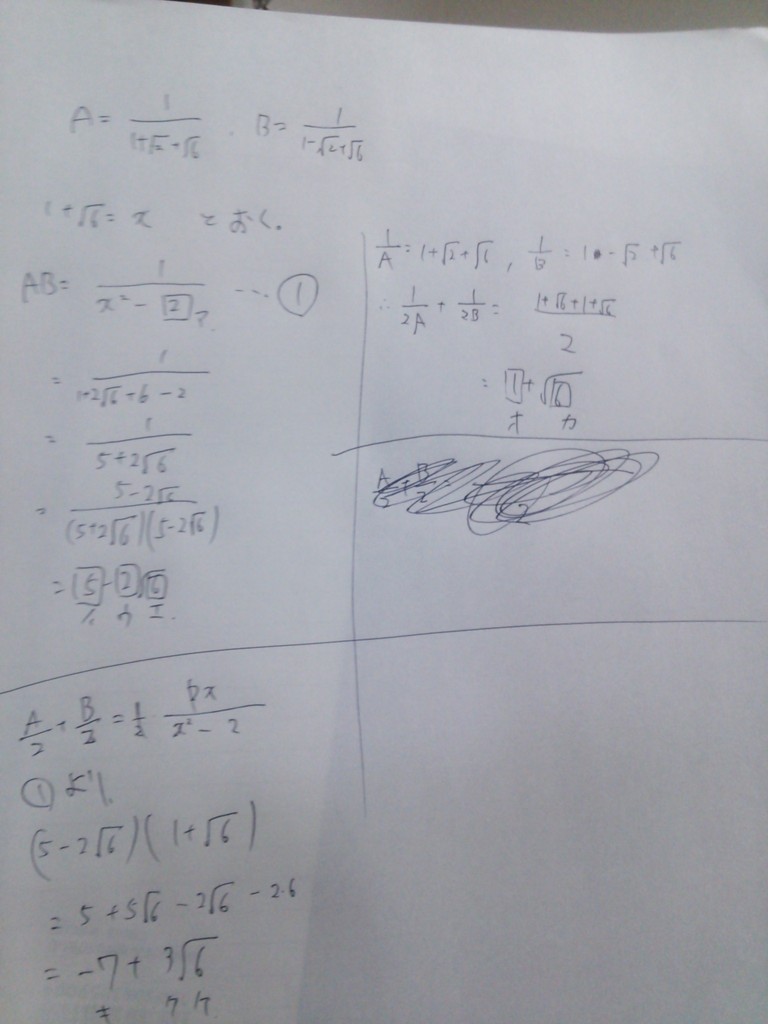 A = 1/(1+√2+√6) . B = 1/(1-√2+√6)
1+√6 = x とおく。
AB = 1/(x² - 2) ... ①
ア
= 1/(1+2√6+6-2)
= 1/(5+2√6)
= (5-2√6)/((5+2√6)(5-2√6))
= 5-2√6
イ ウ エ.
1/A = 1+√2+√6 , 1/B = 1-√2+√6
∴ 1/2A + 1/2B = (1+√6+1+√6)/2
= 1+√6
オ カ
A/2 + B/2 = 1/2 x/(x² - 2)
① より.
(5-2√6)(1+√6)
= 5+5√6-2√6-2·6
= -7+3√6
キ ク ケ